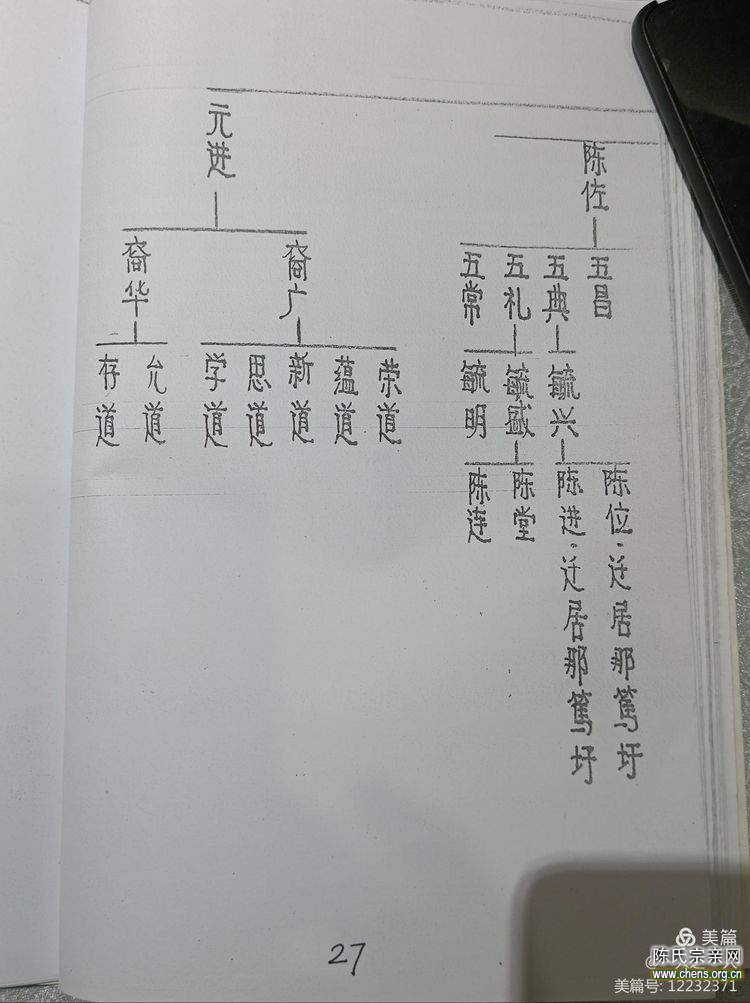 陈佐
五昌
五典
五礼
五常
毓兴
毓盛
毓明
陈位·迁居那篤圩
陈进·迁居那篤圩
陈堂
陈连
元进
裔广
裔华
荣道
蕴道
新道
思道
学道
允道
存道
27
美篇
陈氏宗亲网
www.chens.org.cn
美篇号: 12232371